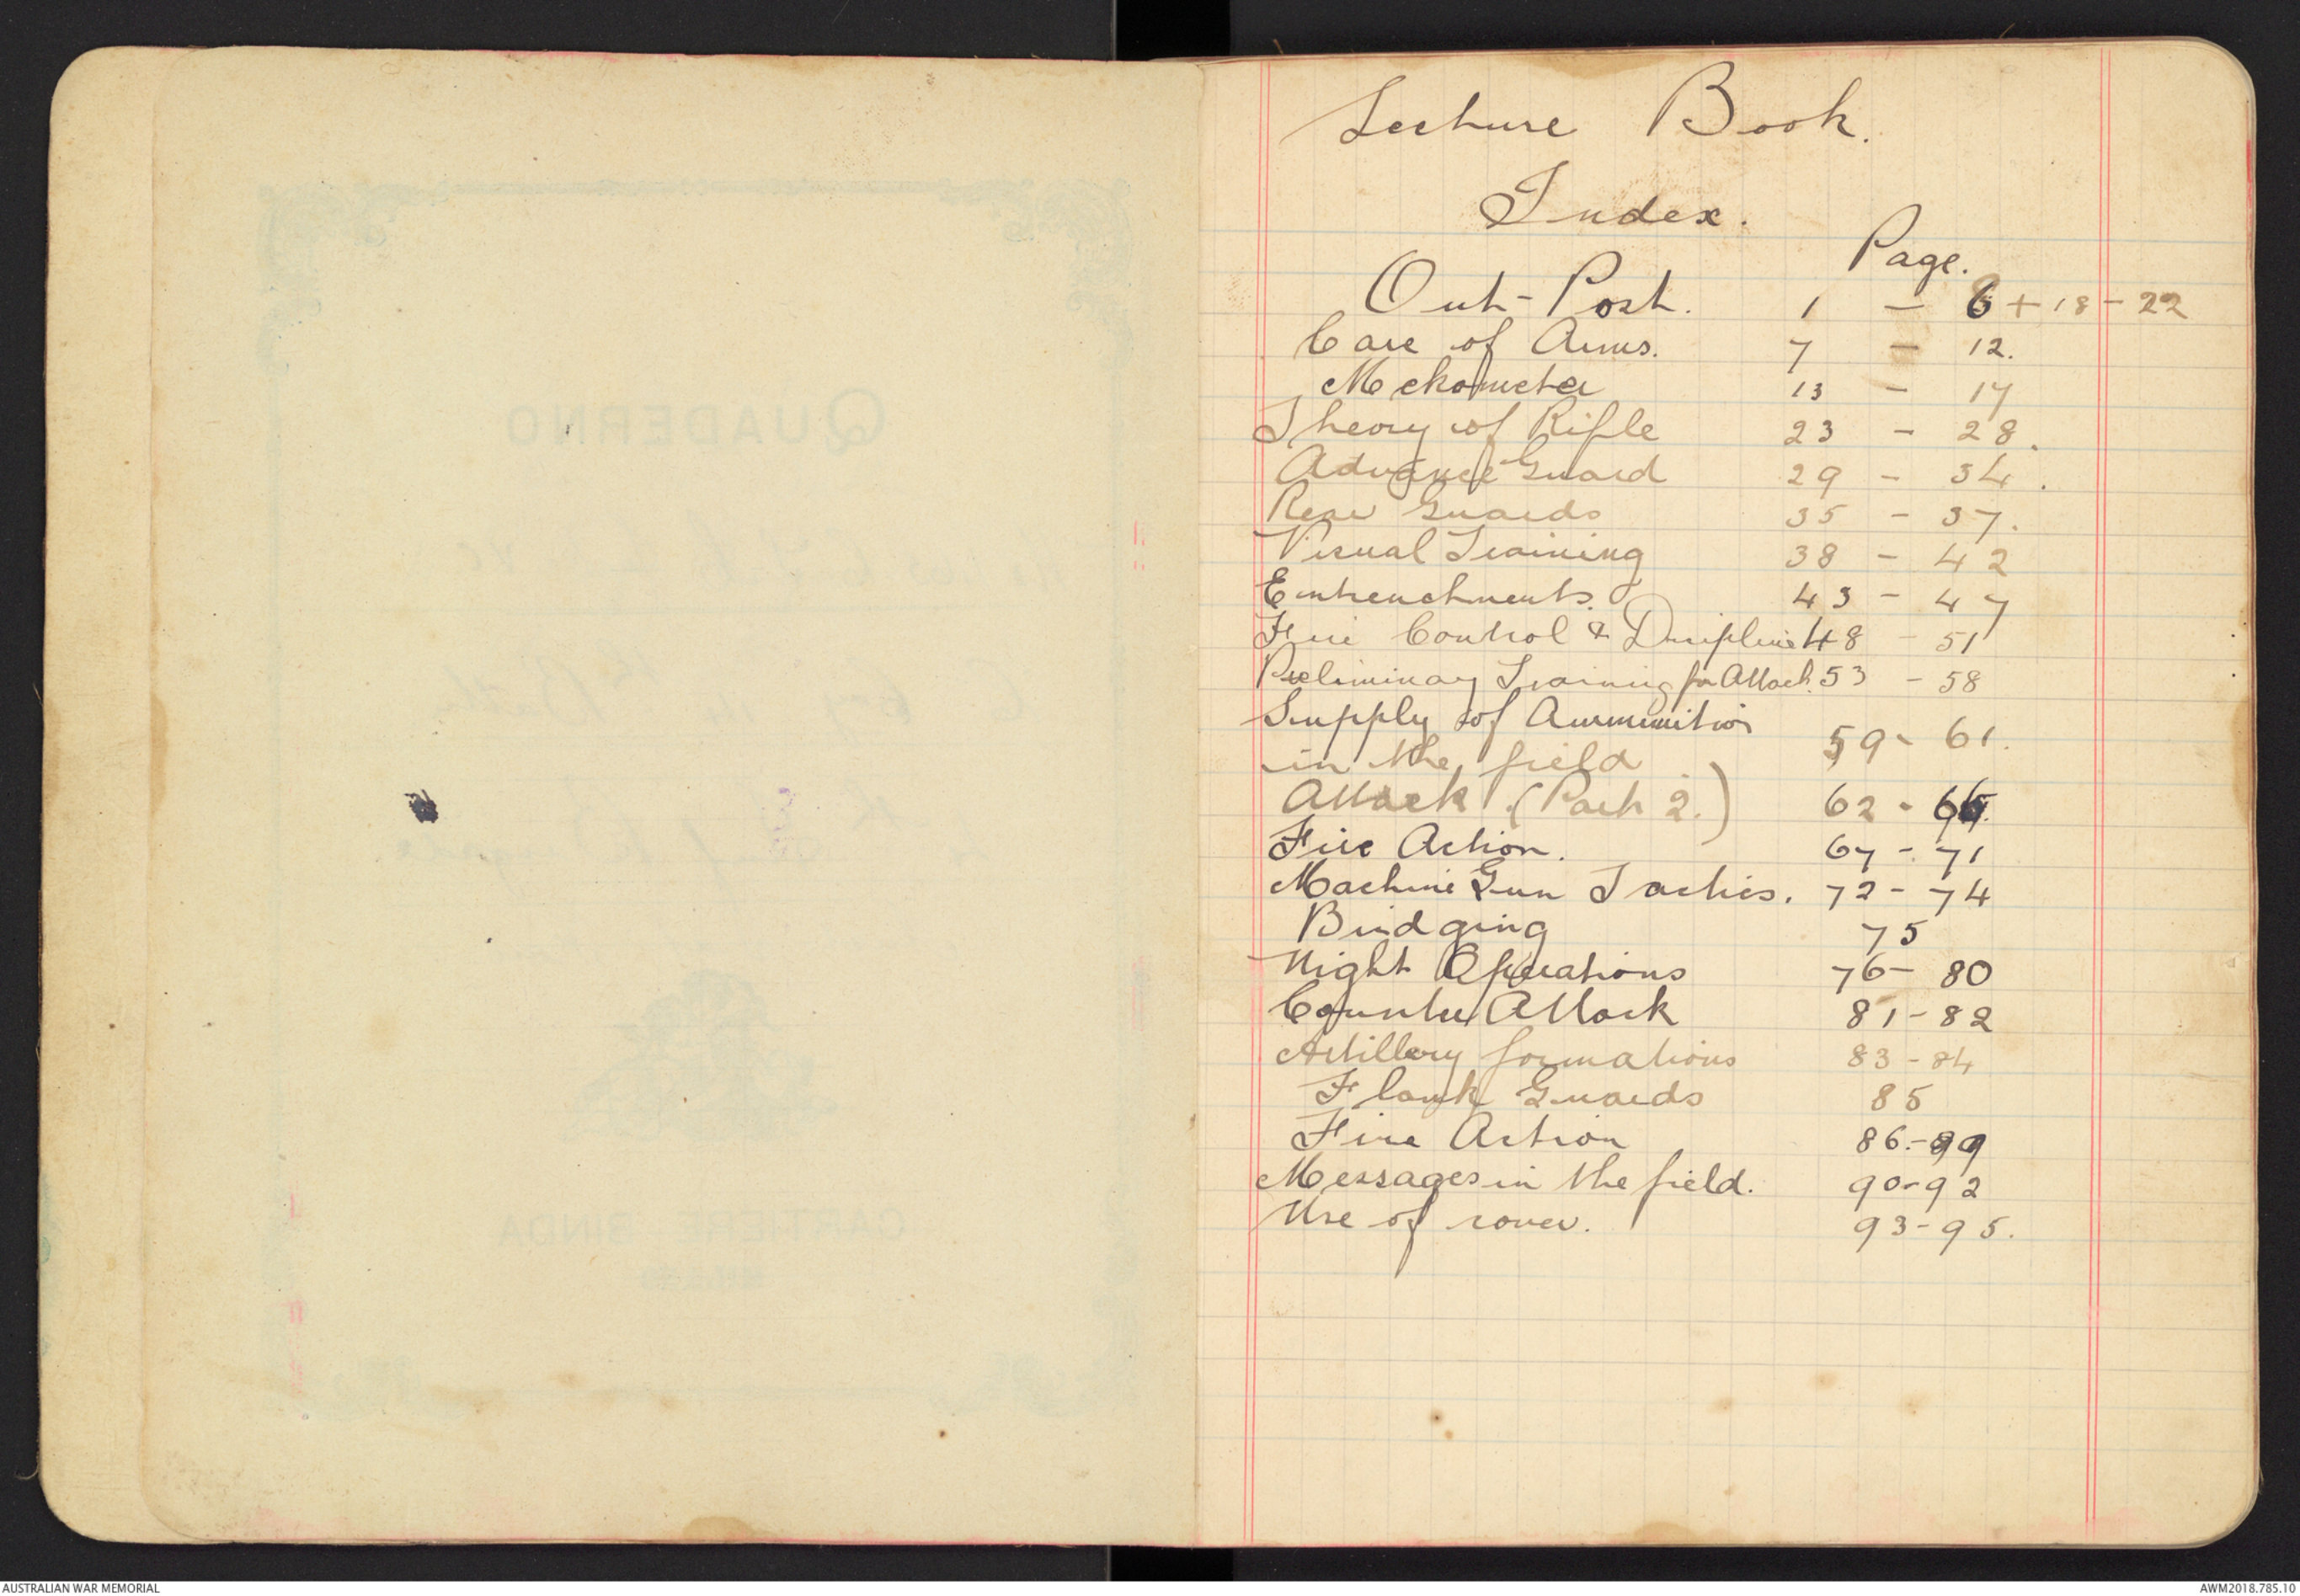 Lecture Book.
Index.
Page.
Out-Post. 1 - 6 + 18 - 22
Care of Arms. 7 - 12.
Mekometer 13 - 17
Theory of Rifle 23 - 28.
Advance Guard 29 - 34.
Rear Guards 35 - 37.
Visual Training 38 - 42
Entrenchments. 43 - 47
Fire Control & Discipline 48 - 51
Preliminary Training for Attack. 53 - 58
Supply of Ammunition
in the field 59 - 61.
Attack (Part 2.) 62 - 66.
Fire Action. 67 - 71
Machine Gun Tactics. 72 - 74
Bridging 75
Night Operations 76 - 80
Counter Attack 81 - 82
Artillery formations 83 - 84
Flank Guards 85
Fire Action 86. - 89
Messages in the field. 90 - 92
Use of cover. 93 - 95.
QUADERNO
CARTIERE BINDA
AUSTRALIAN WAR MEMORIAL
AWM2018.785.10